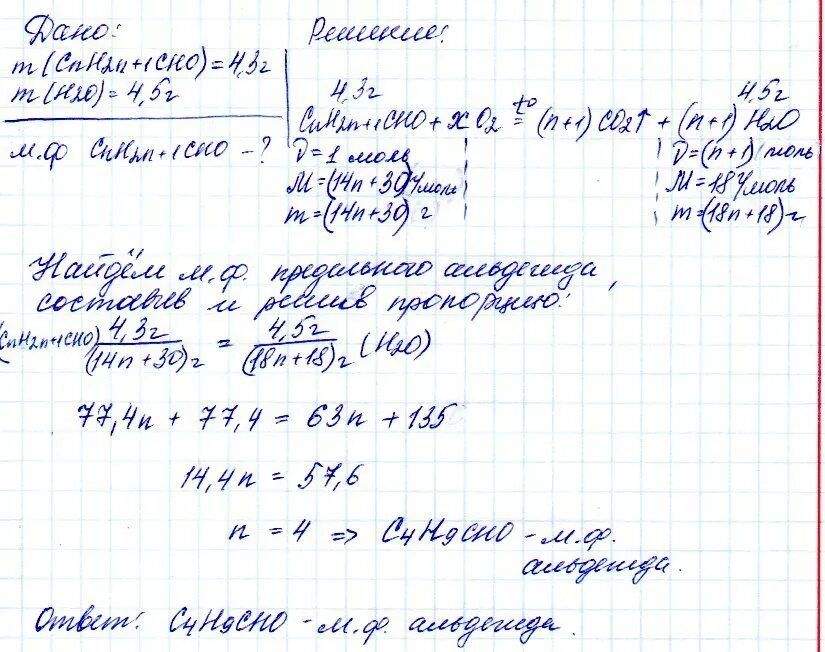 Дано:
m(CnH2n+1CHO)=4,3г
m(H2O)=4,5г
м.ф CnH2n+1CHO-?
Решение:
4,3г 4,5г
CnH2n+1CHO + xO2 t° = (n+1)CO2↑ + (n+1)H2O
ν=1 моль ν=(n+1) моль
M=(14n+30)г/моль M=18г/моль
m=(14n+30)г m=(18n+18)г
Найдём м.ф. предельного альдегида,
составив и решив пропорцию:
(CnH2n+1CHO) 4,3г/(14n+30)г = 4,5г/(18n+18)г (H2O)
77,4n + 77,4 = 63n + 135
14,4n = 57,6
n = 4 => C4H9CHO - м.ф.
альдегида.
Ответ: C4H9CHO - м.ф. альдегида.